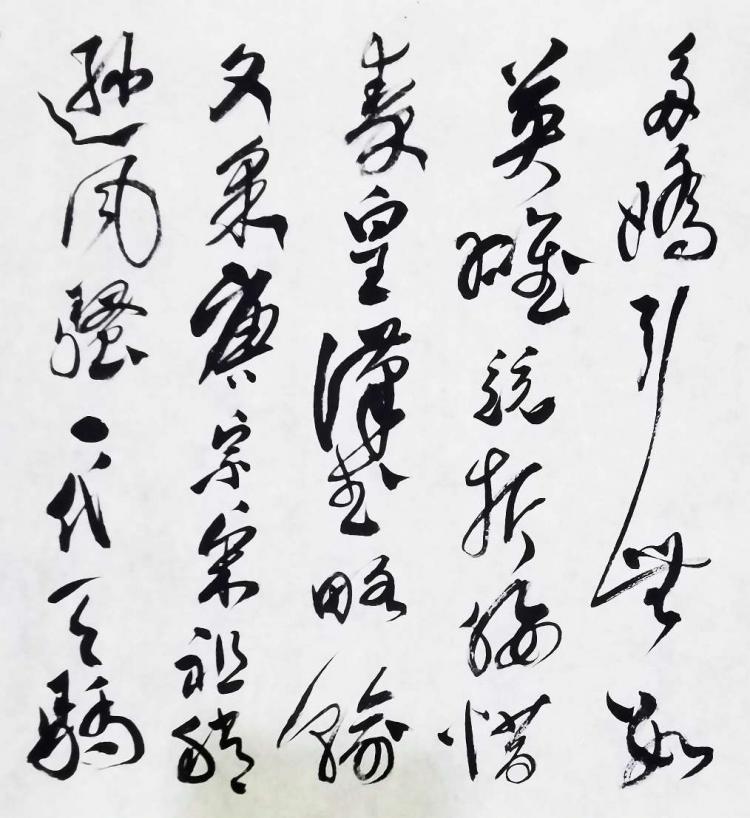 多嬌引無數
英雄競折腰惜
秦皇漢武略輸
文采唐宗宋祖稍
遜風騷一代天驕